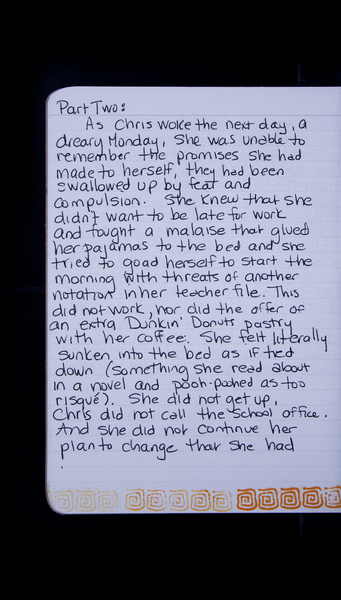 Part Two:
As Chris woke the next day, a
dreary Monday, she was unable to
remember the promises she had
made to herself, they had been
swallowed up by fear and
compulsion. She knew that she
didn't want to be late for work
and fought a malaise that glued
her pajamas to the bed and she
tried to goad herself to start the
morning with threats of another
notation in her teacher file. This
did not work, nor did the offer of
an extra Dunkin' Donuts pastry
with her coffee. She felt literally
sunken into the bed as if tied
down (something she read about
in a novel and pooh-poohed as too
risqué). She did not get up.
Chris did not call the school office.
And she did not continue her
plan to change that she had